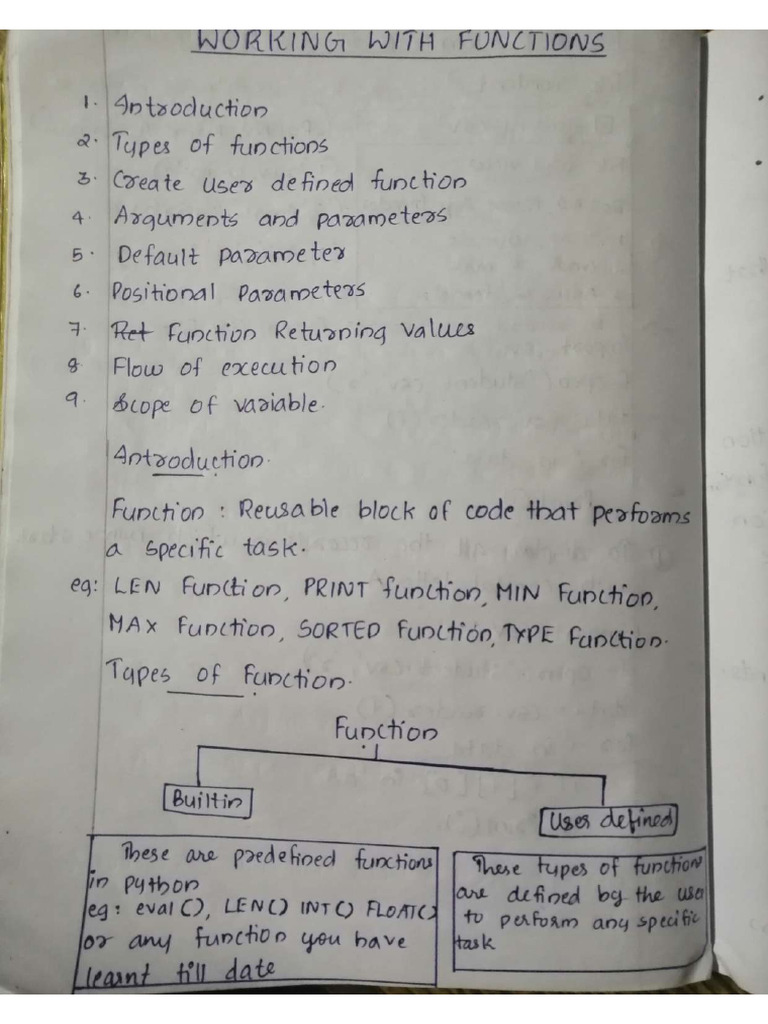 WORKING WITH FUNCTIONS
1. Introduction
2. Types of functions
3. Create user defined function
4. Arguments and parameters
5. Default parameter
6. Positional Parameters
7. Ret Function Returning values
8 Flow of execution
9. Scope of variable.
Introduction.
Function : Reusable block of code that performs
a specific task.
eg: LEN function, PRINT function, MIN Function,
MAX function, SORTED function, TYPE function.
Types of Function.
Function
Builtin
User defined
These are predefined functions
in python
eg: eval(), LEN() INT() FLOAT()
or any function you have
learnt till date
These types of function
are defined by the user
to perform any specific
task